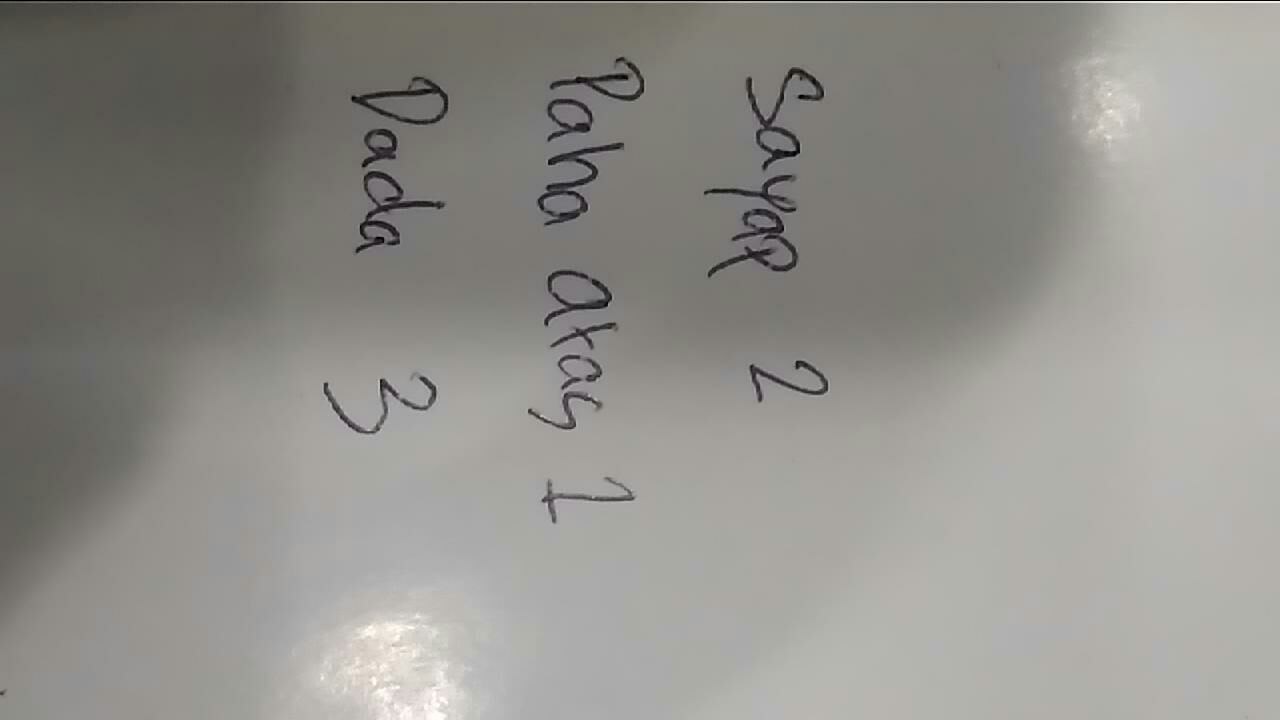 Sayap 2
Paha atas 1
Dada 3